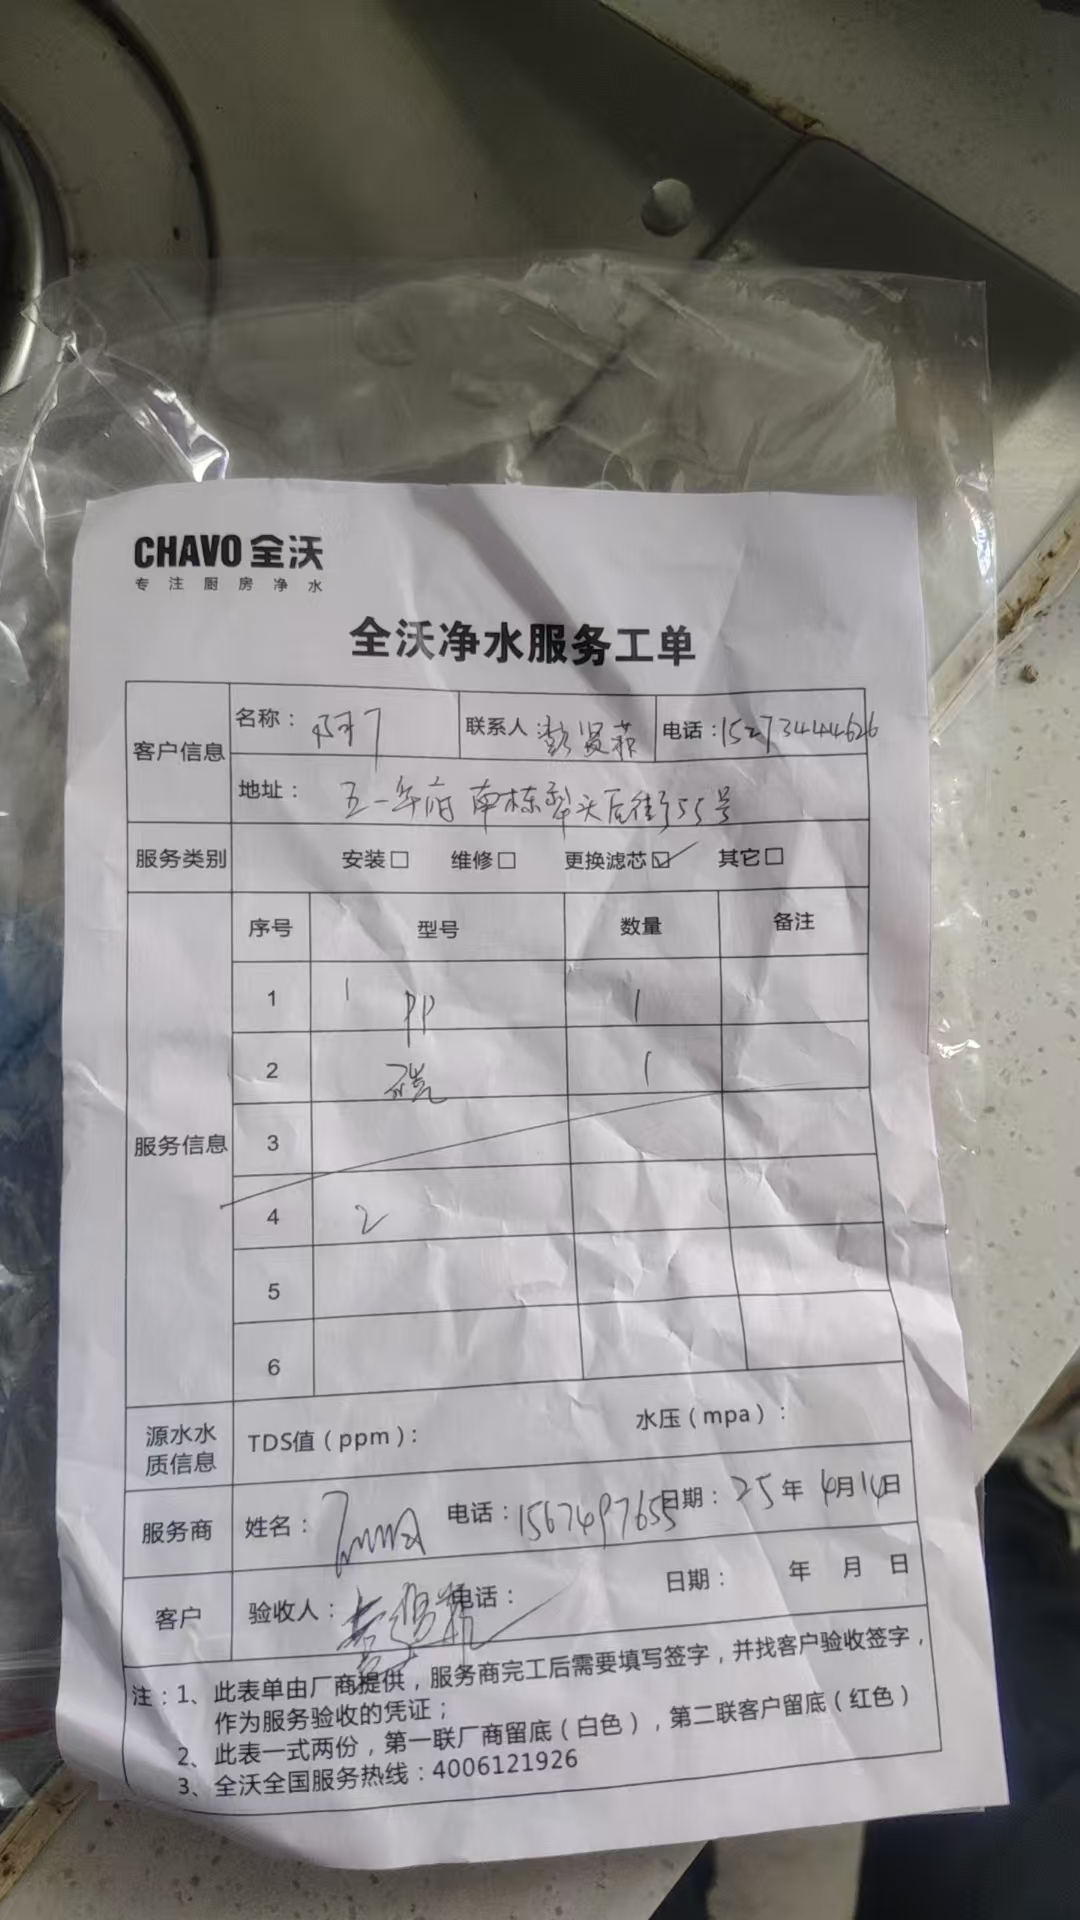 CHAVO 全沃
专注厨房净水
全沃净水服务工单
客户信息
名称： 联系人 彭贤菲 电话：15273444626
地址： 五一华府南栋犁头后街55号
服务类别 安装□ 维修□ 更换滤芯☑ 其它□
服务信息
序号 型号 数量 备注
1 1 PP 1
2 1
3
4 2
5
6
源水水质信息 TDS值（ppm）： 水压（mpa）：
服务商 姓名： 电话：1567497655 日期：25年4月14日
客户 验收人： 电话： 日期： 年 月 日
注：1、此表单由厂商提供，服务商完工后需要填写签字，并找客户验收签字，
作为服务验收的凭证；
2、此表一式两份，第一联厂商留底（白色），第二联客户留底（红色）
3、全沃全国服务热线：4006121926